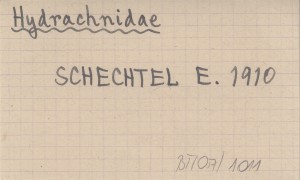 Hydrachnidae
SCHECHTEL E. 1910
BT107/1011